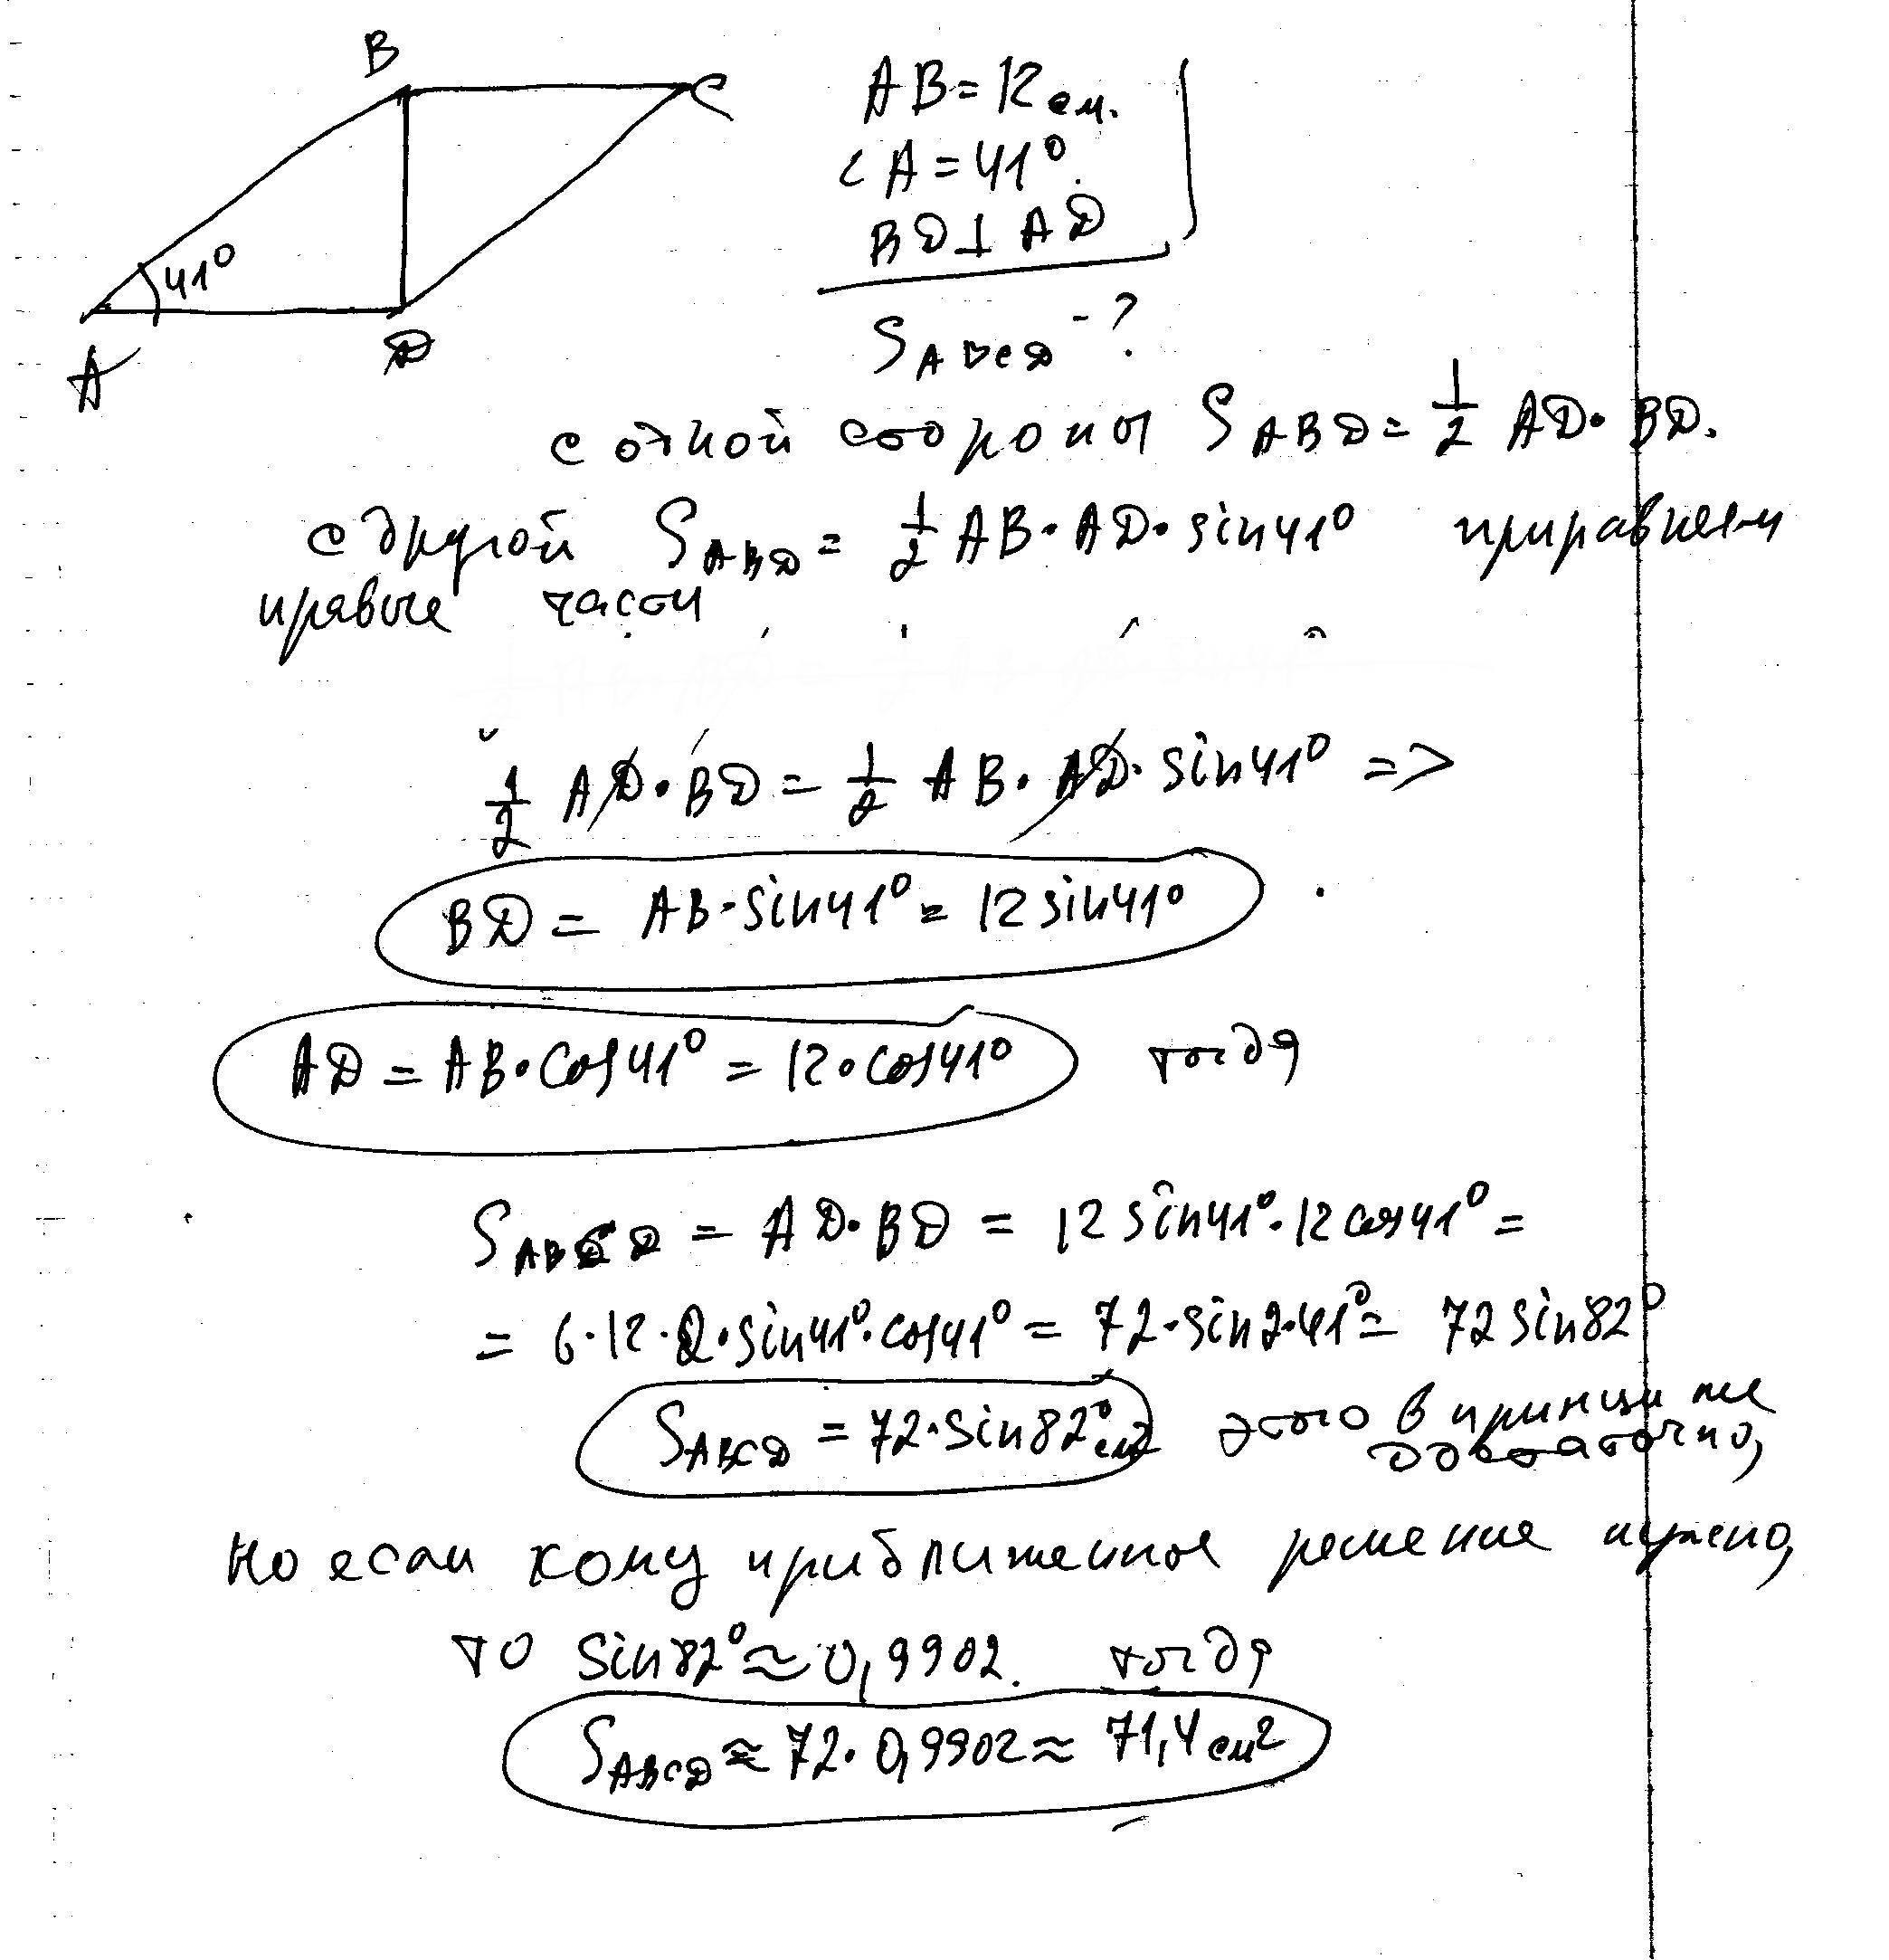 B
C
41°
A
D
AB = 12 см.
∠A = 41°.
BD ⊥ AD
S ABCD - ?
с одной стороны S ABD = 1/2 AD · BD.
с другой S ABD = 1/2 AB · AD · sin41° приравняем
правые части
1/2 AD · BD = 1/2 AB · AD · sin41° =>
BD = AB · sin41° = 12 sin41°
AD = AB · cos41° = 12 · cos41° тогда
S ABCD = AD · BD = 12 sin41° · 12 cos41° =
= 6 · 12 · 2 · sin41° · cos41° = 72 · sin2·41° = 72 sin82°
S ABCD = 72 · sin82° см2 этого в принципе
достаточно,
но если кому приближенное решение нужно,
то sin82° ≈ 0,9902. тогда
S ABCD ≈ 72 · 0,9902 ≈ 71,4 см²